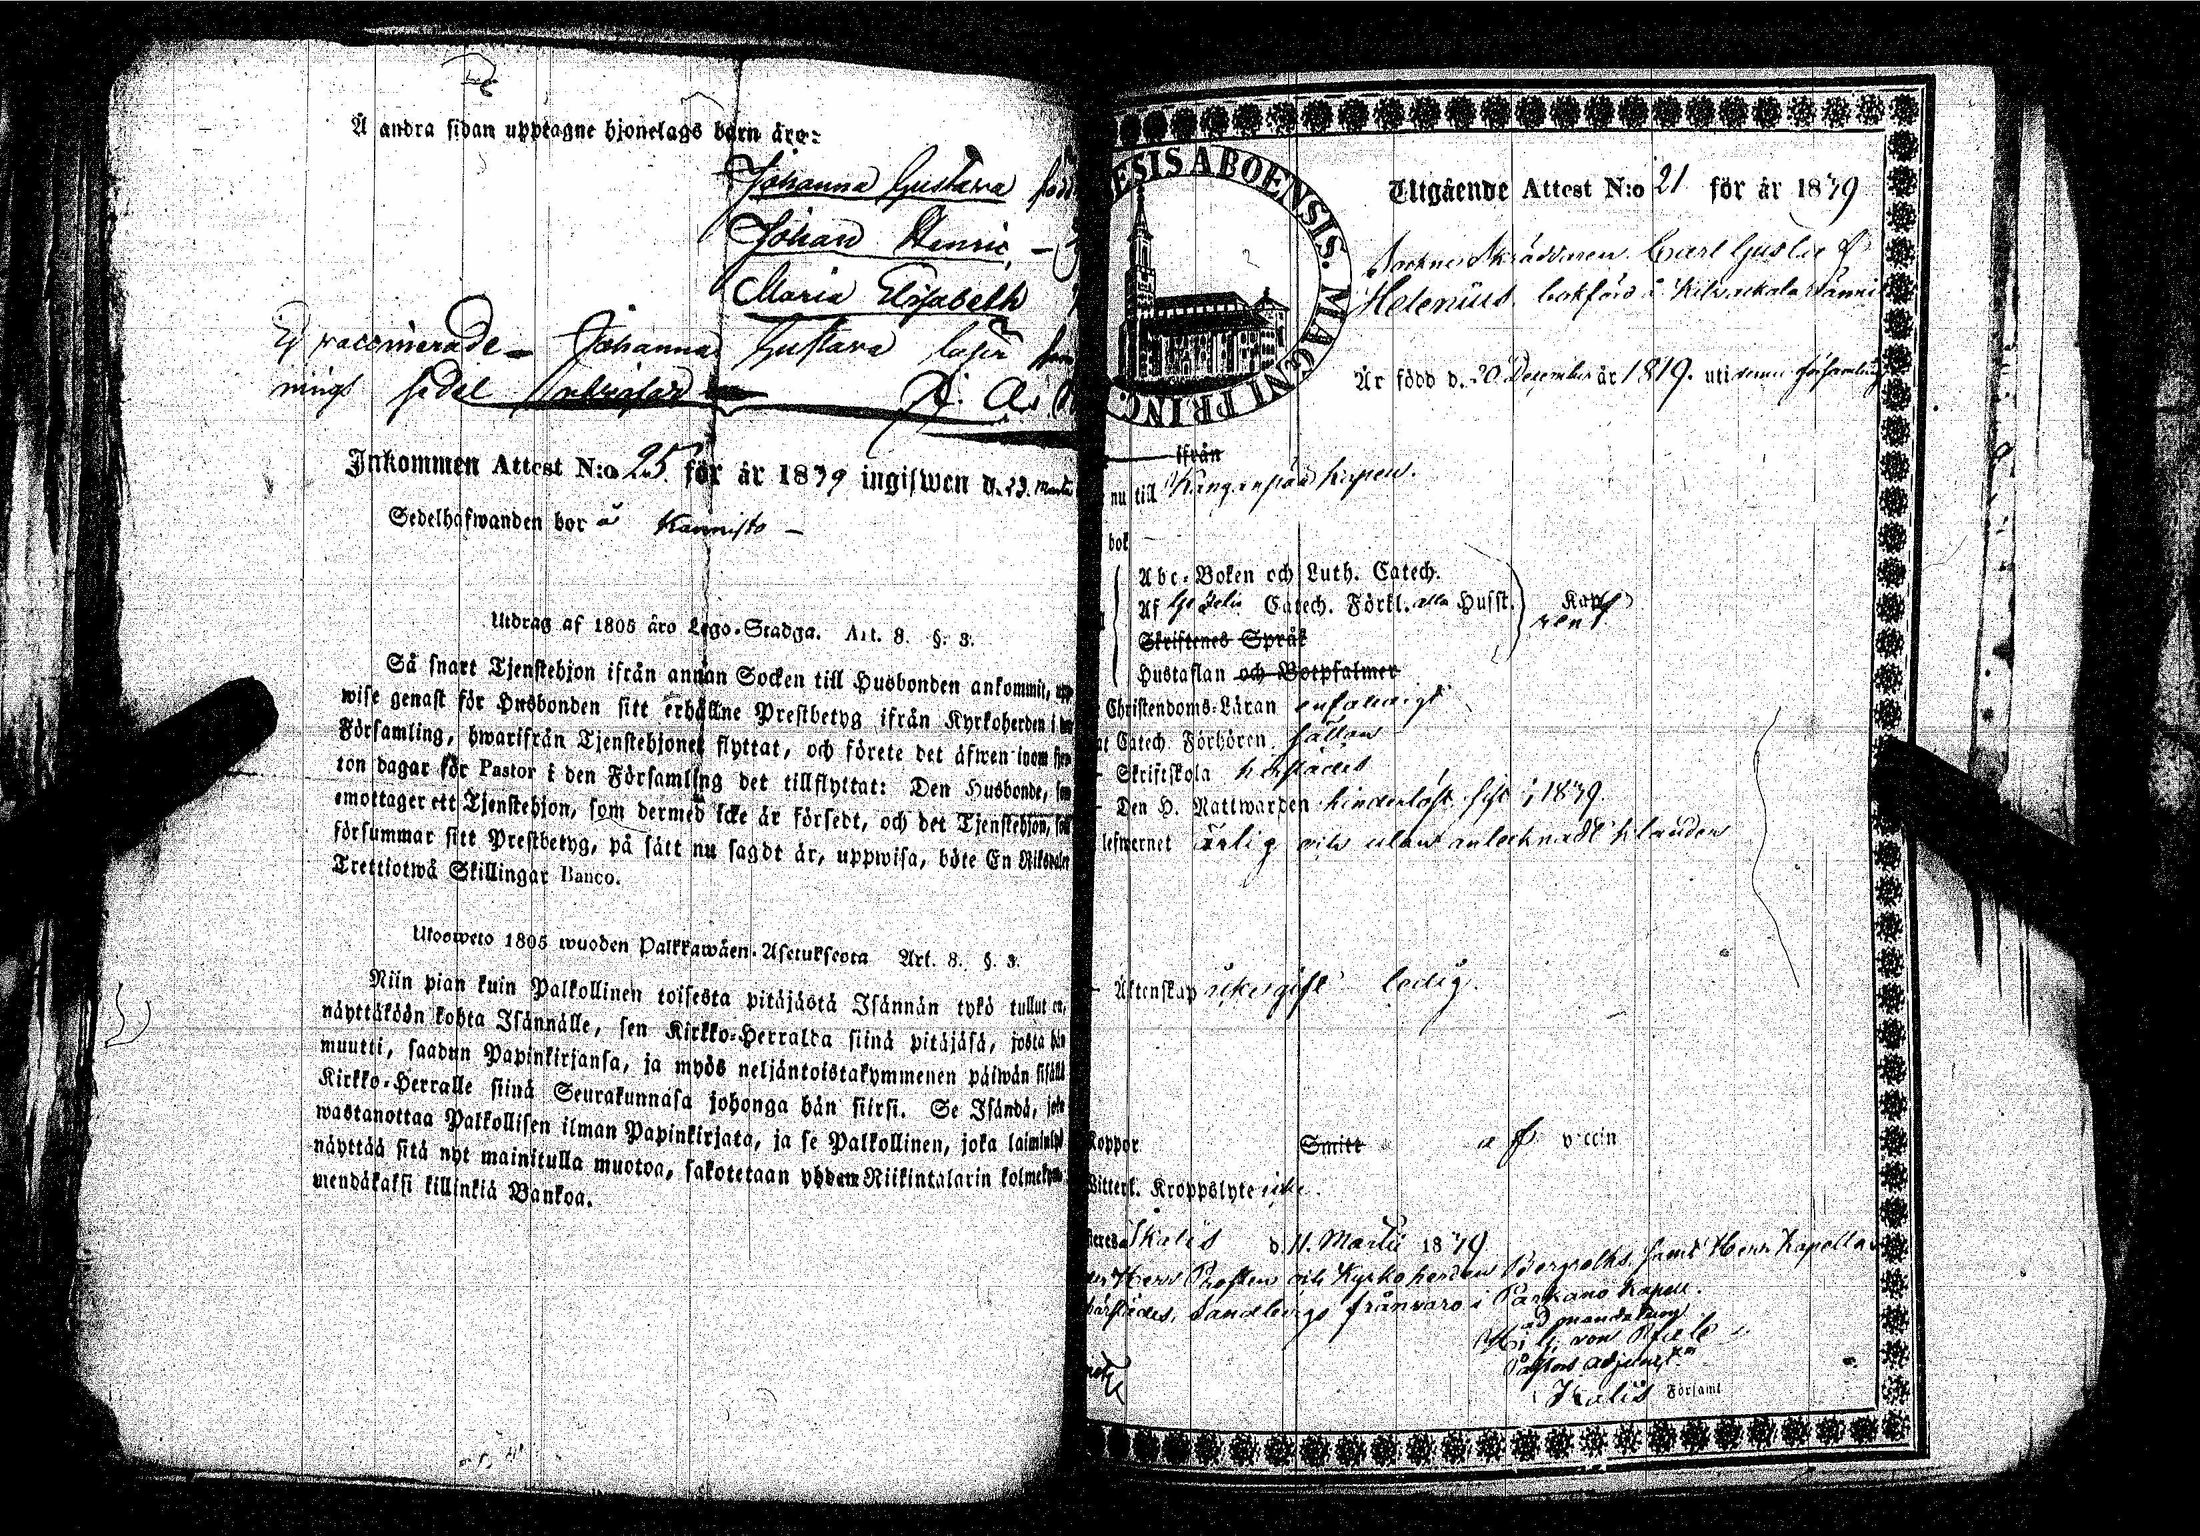 Å andra sidan upptagne hjonelags barn äro:
Johanna Gustava född
Johan Henric, –
Maria Elisabeth
Ej vaccinerade – Johanna Gustava
nings sedel
Inkommen Attest N:o 25 för år 1839 ingifwen d. 23. Martii
Sedelhafwanden bor å Kannisto –
Utdrag af 1805 års Lego-Stadga. Art. 8. §. 3.
Så snart Tjenstehjon ifrån annan Socken till Husbonden ankommit, upp-
wise genast för Husbonden sitt erhållne Prestbetyg ifrån Kyrkoherden i
Församling, hwarifrån Tjenstehjonet flyttat, och förete det äfwen inom fjor-
ton dagar för Pastor i den Församling det tillflyttat: Den Husbonde, som
emottager ett Tjenstehjon, som dermed icke är försedt, och det Tjenstehjon, som
försummar sitt Prestbetyg, på sätt nu sagdt är, uppwisa, böte En Riksdaler
Trettiotwå Skillingar Banco.
Ulosweto 1805 wuoden Palkkawäen-Asetuksesta Art. 8. §. 3.
Niin pian kuin Palkollinen toisesta pitäjästä Isännän tykö tullut on,
näyttäköön kohta Isännälle, sen Kirkko-Herralda siinä pitäjäsä, josta hän
muutti, saadun Papinkirjansa, ja myös neljäntoistakymmenen päiwän sisällä
Kirkko-Herralle siinä Seurakunnasa johonga hän siirsi. Se Isändä, joka
wastanottaa Palkollisen ilman Papinkirjata, ja se Palkollinen, joka laiminlyö
näyttää sitä nyt mainitulla muotoa, sakotetaan yhden Riikintalarin kolmekym-
mendäkaksi killinkiä Bankoa.
ESIS ABOENSIS. MAGNI PRINC.
Utgående Attest N:o 21 för år 1839
Sockneskräddaren Carl Gustaf
Helenius bokförd i
Är född d. 20 December år 1819. uti denna församling
ifrån
nu till Kangenpää Kapell.
bok –
Abc-Boken och Luth. Catech.
Af Catech. Förkl. Husst.
Skriftenes Språk
Hustaflan och Botpsalmer
Christendoms-Läran enfaldigt
at Catech. Förhören sällan
– Skriftskola härstädes
– Den H. Nattwarden hinderlöst sist 1839.
lefwernet ärlig och utan antecknadt klander
– Äktenskap ledig.
Koppor Smitt af vaccin
Witterl. Kroppslyte icke.
Ikalis d. 11. Martii 1839
Herr Prosten och Kyrkoherden Bergroths samt Herr Kapellan
härstädes, Sandbergs frånvaro i Parkano Kapell.
ad mandatum
Pastors adjunct.
Ikalis Församl